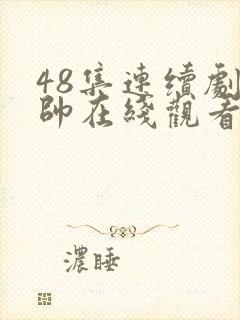 48集连续劇
帥在綫觀看
濃睡